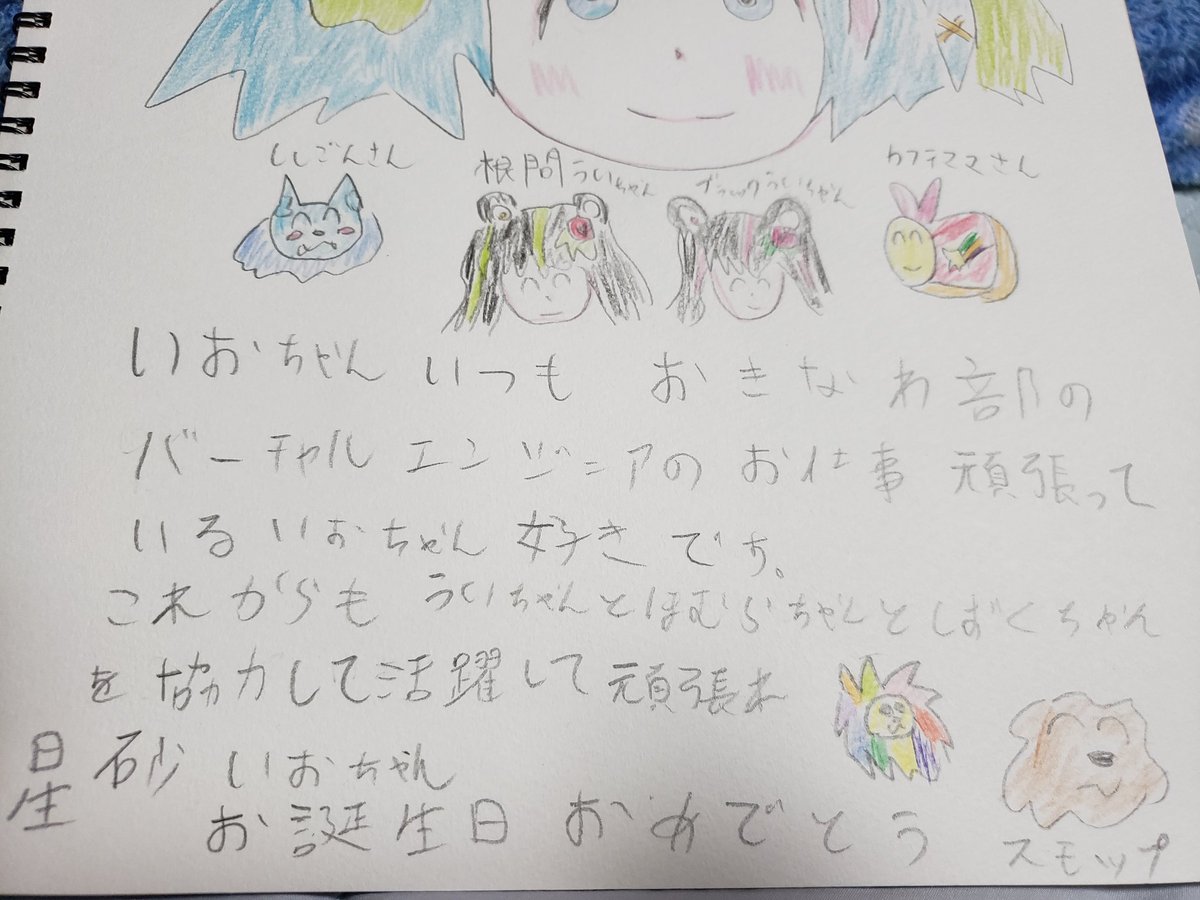 ししごんさん
根間ういちゃん
ブラックういちゃん
カフテママさん
いおちゃん いつも おきなわ部の
バーチャルエンジニアのお仕事 頑張って
いるいおちゃん好きです。
これからも ういちゃんとほむらちゃんとしずくちゃん
を協力して活躍して頑張れ
星砂 いおちゃん
お誕生日おめでとう
スモップ